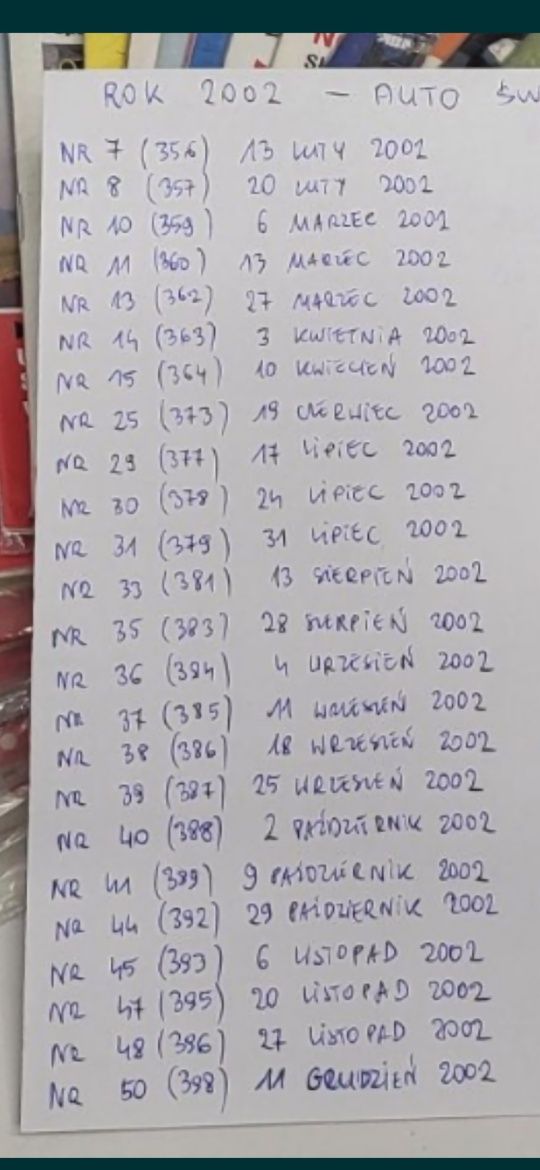 ROK 2002 – AUTO ŚW
NR 7 (356) 13 LUTY 2002
NR 8 (357) 20 LUTY 2002
NR 10 (359) 6 MARZEC 2002
NR 11 (360) 13 MARZEC 2002
NR 13 (362) 27 MARZEC 2002
NR 14 (363) 3 KWIETNIA 2002
NR 15 (364) 10 KWIECIEŃ 2002
NR 25 (373) 19 CZERWIEC 2002
NR 29 (377) 17 LIPIEC 2002
NR 30 (378) 24 LIPIEC 2002
NR 31 (379) 31 LIPIEC 2002
NR 33 (381) 13 SIERPIEŃ 2002
NR 35 (383) 28 SIERPIEŃ 2002
NR 36 (384) 4 WRZESIEŃ 2002
NR 37 (385) 11 WRZESIEŃ 2002
NR 38 (386) 18 WRZESIEŃ 2002
NR 39 (387) 25 WRZESIEŃ 2002
NR 40 (388) 2 PAŹDZIERNIK 2002
NR 41 (389) 9 PAŹDZIERNIK 2002
NR 44 (392) 29 PAŹDZIERNIK 2002
NR 45 (393) 6 LISTOPAD 2002
NR 47 (395) 20 LISTOPAD 2002
NR 48 (396) 27 LISTOPAD 2002
NR 50 (398) 11 GRUDZIEŃ 2002